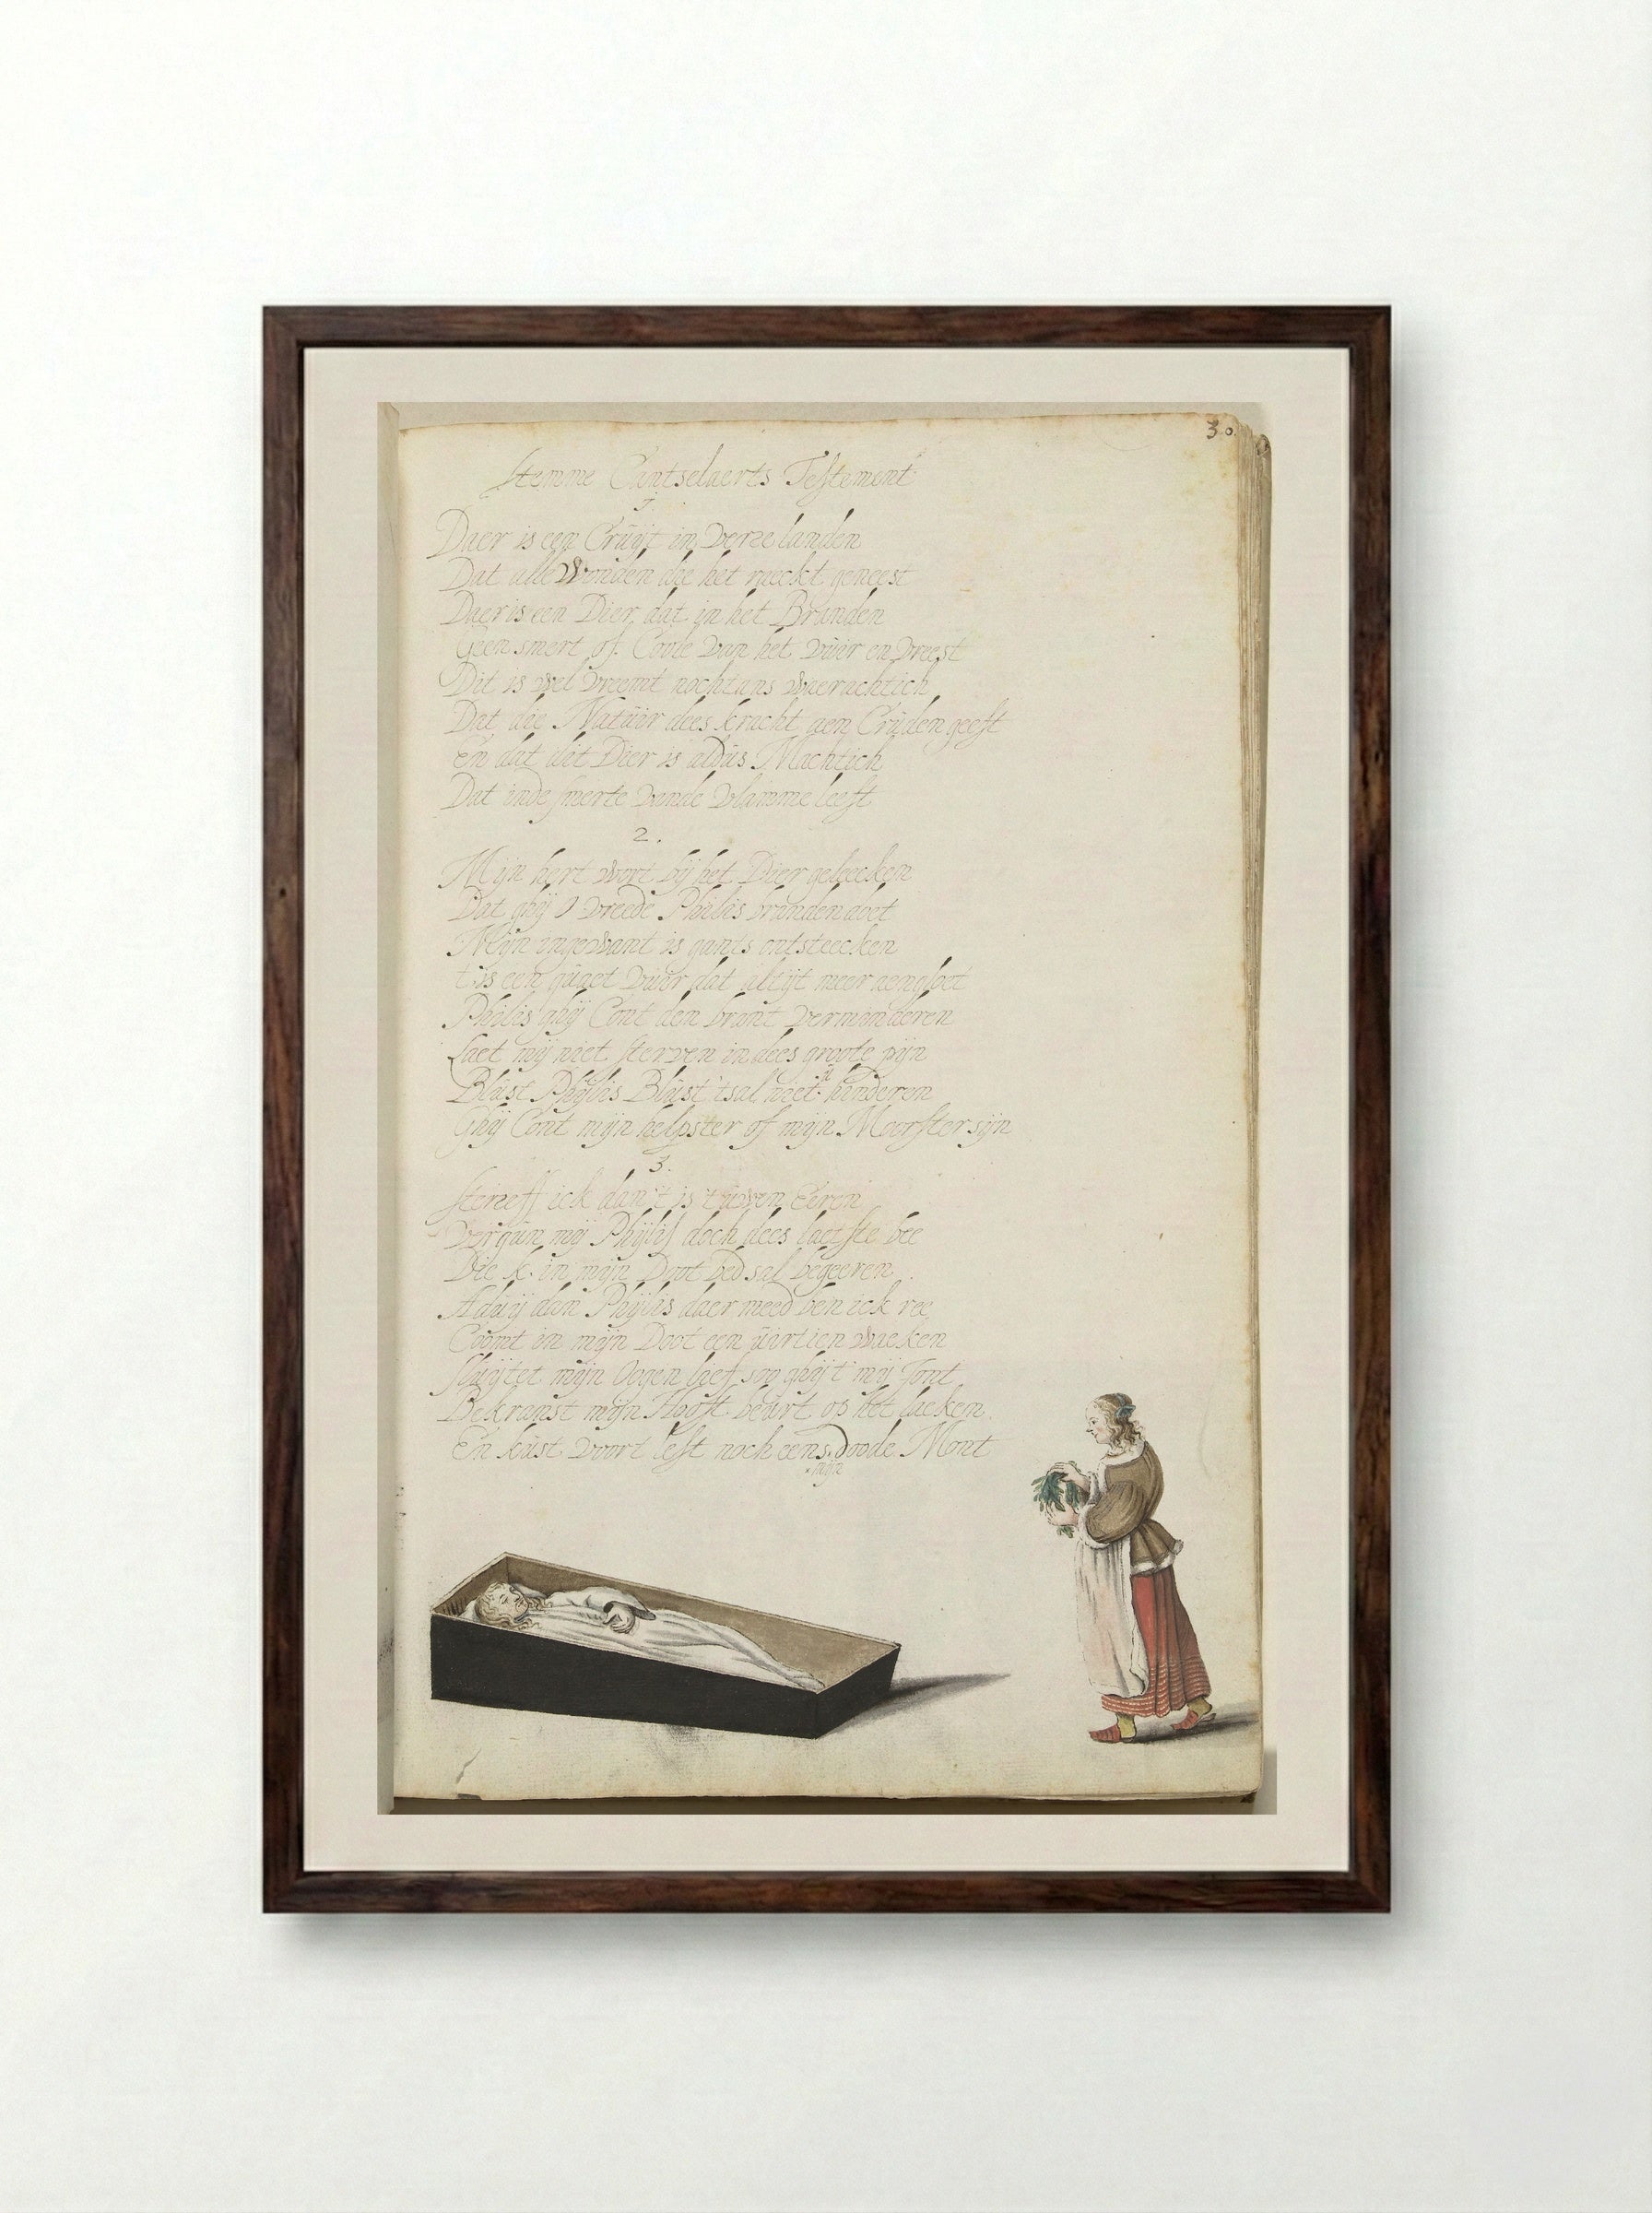 30.
Stemme Cantselaerts Testement
1.
Daer is een Cruÿt in verre landen
Dat alle Wonden die het raeckt geneest
Daer is een Dier dat in het Branden
Geen smert of Coole van het vuur en vreest
Dit is wel vreemt nochtans waerachtich
Dat die Natuur dees kracht aen Cruden geeft
En dat dit Dier is aldus Machtich
Dat inde smerte vande vlamme leeft
2.
Mijn hert wort bij het Dier geleecken
Dat ghij O vreede Philis branden doet
Mijn ingewant is gants ontsteecken
t is een quaet vuur dat altijt meer aengloet
Philis ghij Cont den brant verminderen
Laet mij niet sterven in dees groote pijn
Blust Phylis Blust 'tsal niet u hinderen
Ghij Cont mijn helpster of mijn Moorster sijn
3.
Sterref ick dan 't is t uwen Eeren
Vergun mij Phylis doch dees laetste bee
Die k. in mijn Doot bed sal begeeren
Aduij dan Phylis daer meed ben ick ree
Coomt in mijn Doot een uirtien waeken
Sluijtet mijn Oogen lief soo ghij't mij Jont
Bekranst mijn Hooft beurt op het laeken
En kust voort lest noch eens doode Mont
mijn